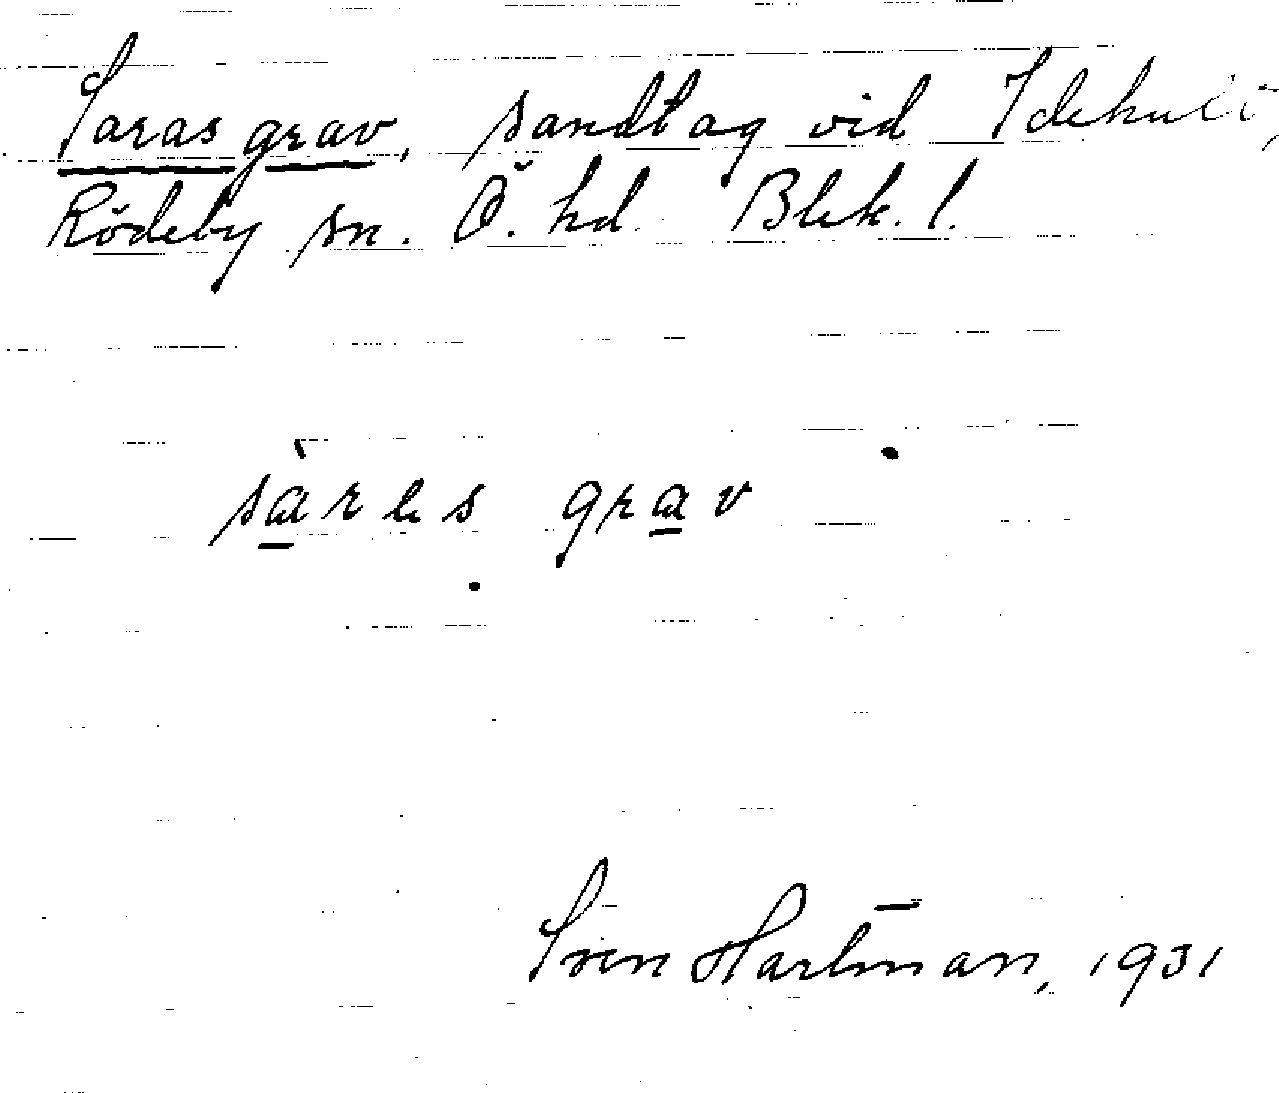 Saras grav, sandtag vid Idehult,
Rödeby sn. Ö. hd. Blek. l.
sàrəs grav
Sven Hartman, 1931